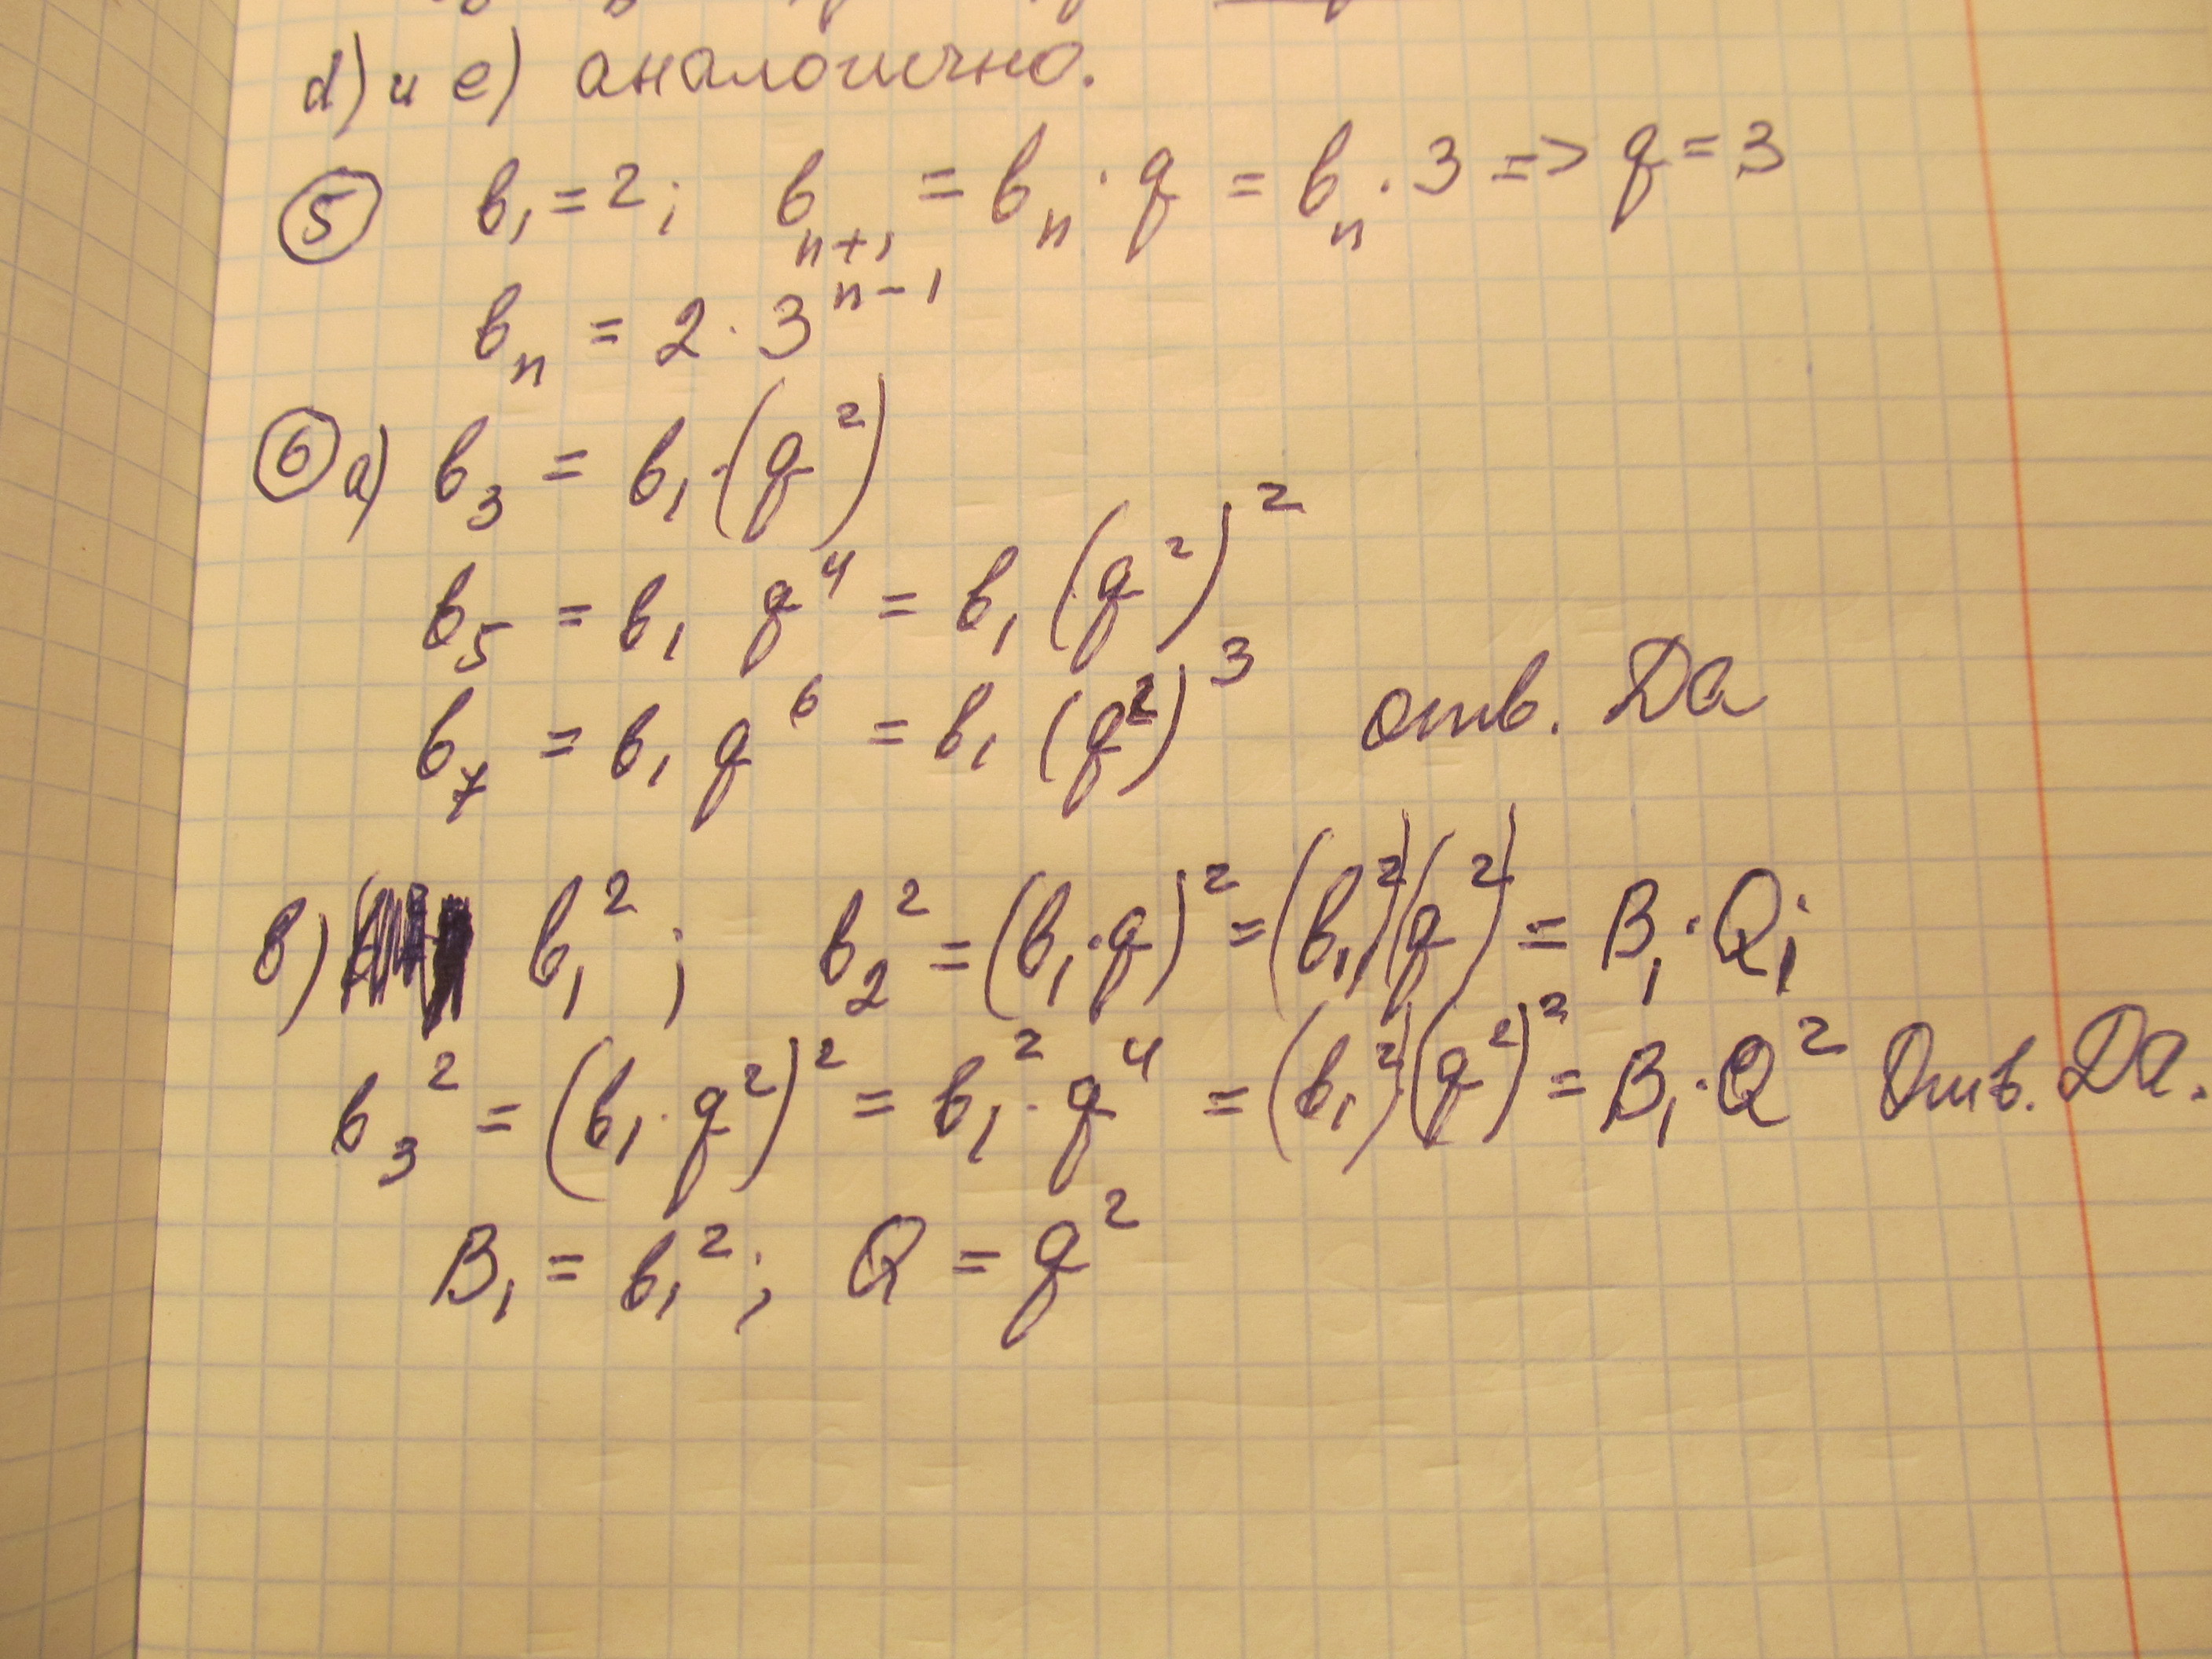 d) и е) аналогично.
⑤ b₁ = 2; bₙ₊₁ = bₙ · q = bₙ · 3 => q = 3
bₙ = 2 · 3ⁿ⁻¹
⑥ а) b₃ = b₁ · (q²)
b₅ = b₁ q⁴ = b₁ (q²)²
b₇ = b₁ q⁶ = b₁ (q²)³ отв. Да
в) b₁²; b₂² = (b₁ · q)² = (b₁²)(q²) = B₁ · Q;
b₃² = (b₁ · q²)² = b₁² · q⁴ = (b₁²)(q²)² = B₁ · Q² Отв. Да.
B₁ = b₁²; Q = q²